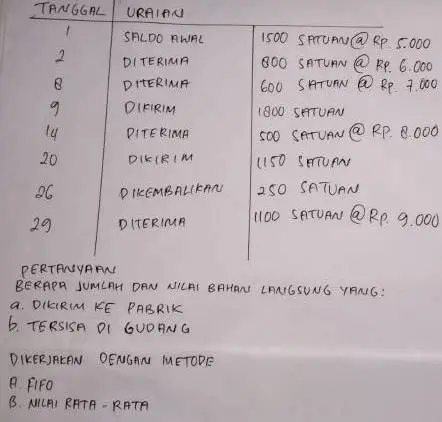 TANGGAL URAIAN
1 SALDO AWAL 1500 SATUAN @ Rp. 5.000
2 DITERIMA 800 SATUAN @ Rp. 6.000
8 DITERIMA 600 SATUAN @ Rp. 7.000
9 DIKIRIM 1800 SATUAN
14 DITERIMA 500 SATUAN @ Rp. 8.000
20 DIKIRIM 1150 SATUAN
26 DIKEMBALIKAN 250 SATUAN
29 DITERIMA 1100 SATUAN @ Rp. 9.000
PERTANYAAN
BERAPA JUMLAH DAN NILAI BAHAN LANGSUNG YANG:
a. DIKIRIM KE PABRIK
b. TERSISA DI GUDANG
DIKERJAKAN DENGAN METODE
A. FIFO
B. NILAI RATA-RATA